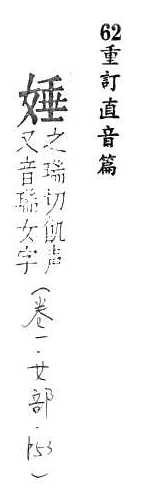 62重訂直音篇
娷
之瑞切飢声
又音㼐女字
(卷一·女部·P53)